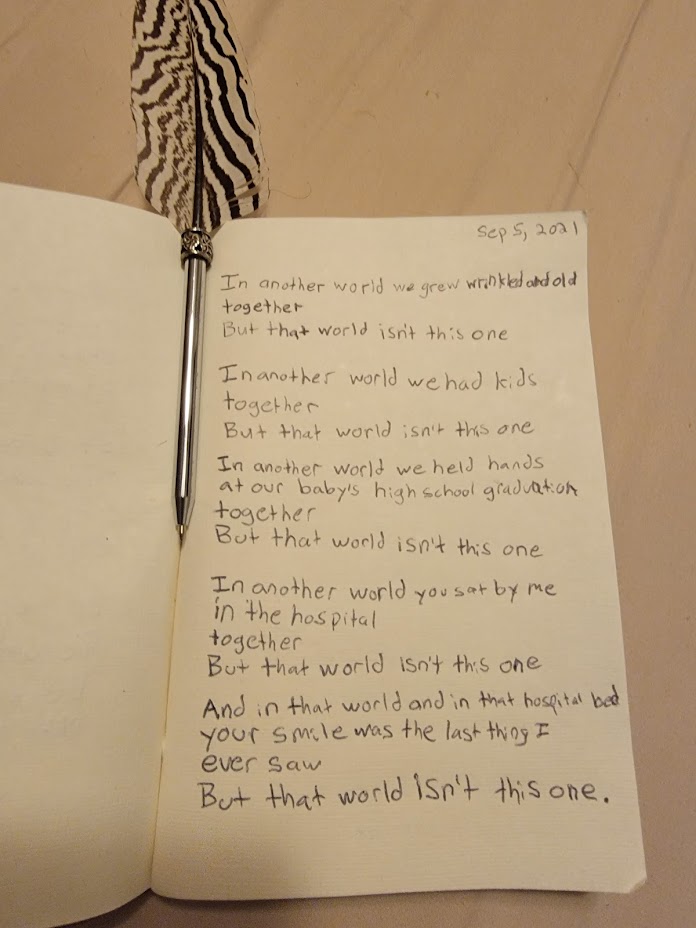 Sep 5, 2021
In another world we grew wrinkled and old
together
But that world isn't this one
In another world we had kids
together
But that world isn't this one
In another world we held hands
at our baby's high school graduation
together
But that world isn't this one
In another world you sat by me
in the hospital
together
But that world isn't this one
And in that world and in that hospital bed
your smile was the last thing I
ever saw
But that world isn't this one.